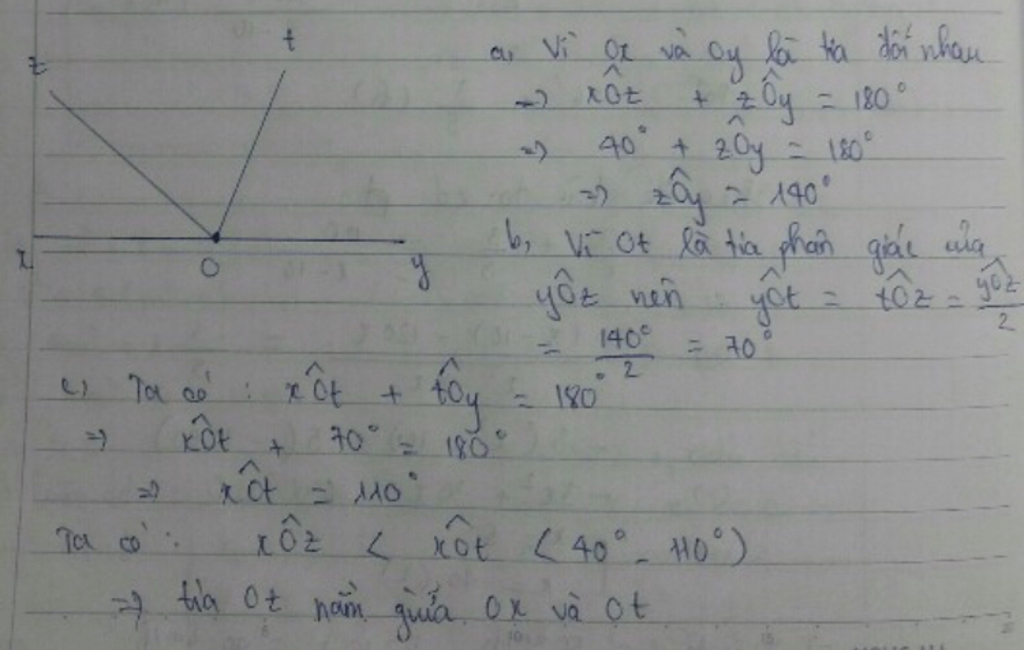 z
t
x
O
y
a, Vì Ox và Oy là tia đối nhau
=> xÔz + zÔy = 180°
=> 40° + zÔy = 180°
=> zÔy = 140°
b, Vì Ot là tia phân giác của
yÔz nên : yÔt = tÔz = yÔz/2
= 140°/2 = 70°
c, Ta có : xÔt + tÔy = 180°
=> xÔt + 70° = 180°
=> xÔt = 110°
Ta có : xÔz < xÔt (40° - 110°)
=> tia Oz nằm giữa Ox và Ot